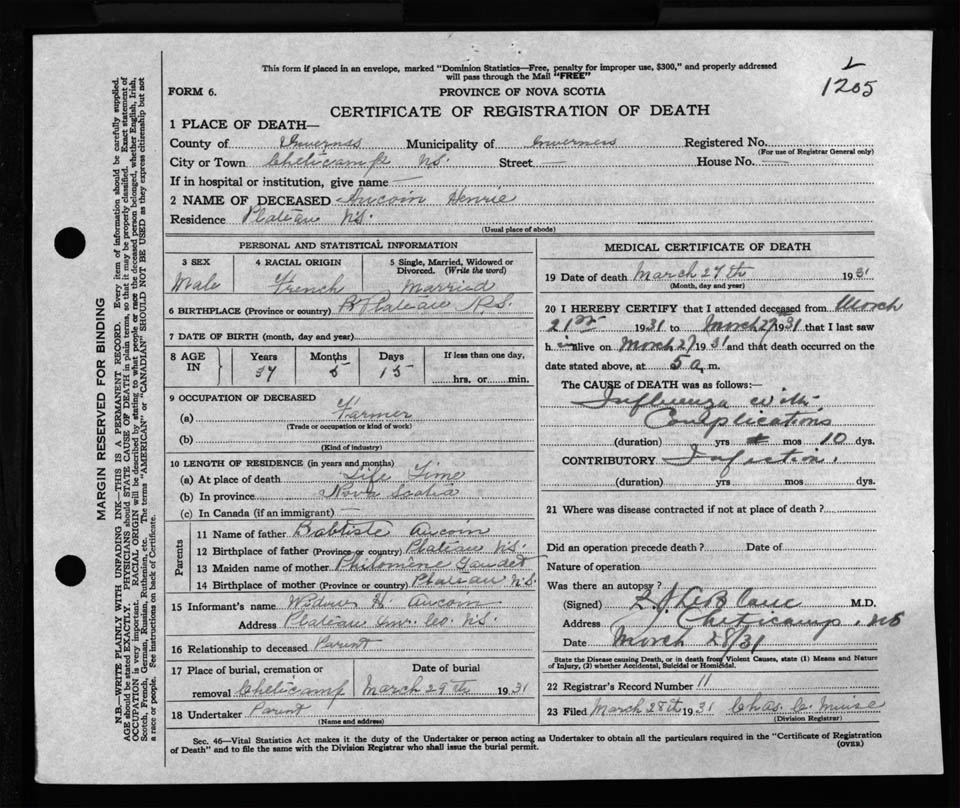 This form if placed in an envelope, marked "Dominion Statistics—Free, penalty for improper use, $300," and properly addressed
will pass through the Mail "FREE"
L
1205
FORM 6.
PROVINCE OF NOVA SCOTIA
CERTIFICATE OF REGISTRATION OF DEATH
1 PLACE OF DEATH—
County of Inverness Municipality of Inverness Registered No.
(For use of Registrar General only)
City or Town Cheticamp N.S. Street — House No. —
If in hospital or institution, give name —
2 NAME OF DECEASED Aucoin Henrie
Residence Plateau N.S.
(Usual place of abode)
PERSONAL AND STATISTICAL INFORMATION
3 SEX
Male
4 RACIAL ORIGIN
French
5 Single, Married, Widowed or
Divorced. (Write the word)
Married
6 BIRTHPLACE (Province or country) Plateau N.S.
7 DATE OF BIRTH (month, day and year)
8 AGE
IN
Years
Months
Days
If less than one day,
37 5 15
hrs. or min.
9 OCCUPATION OF DECEASED
(a) Farmer
(Trade or occupation or kind of work)
(b)
(Kind of industry)
10 LENGTH OF RESIDENCE (in years and months)
(a) At place of death Life Time
(b) In province Nova Scotia
(c) In Canada (if an immigrant) —
Parents
11 Name of father Babtiste Aucoin
12 Birthplace of father (Province or country) Plateau N.S.
13 Maiden name of mother Philomene Gaudet
14 Birthplace of mother (Province or country) Plateau N.S.
15 Informant's name H. Aucoin
Address Plateau Inv. Co. N.S.
16 Relationship to deceased Parent
17 Place of burial, cremation or
removal Cheticamp
Date of burial
March 29th 1931
18 Undertaker Parent
(Name and address)
MEDICAL CERTIFICATE OF DEATH
19 Date of death March 27th 1931
(Month, day and year)
20 I HEREBY CERTIFY that I attended deceased from March
21st 1931 to March 27 1931 that I last saw
h im alive on March 27 1931 and that death occurred on the
date stated above, at 5 a. m.
The CAUSE of DEATH was as follows:—
Influenza with
Complications
(duration) yrs mos 10 dys.
CONTRIBUTORY Infection.
(duration) yrs mos dys.
21 Where was disease contracted if not at place of death?
Did an operation precede death? Date of
Nature of operation
Was there an autopsy?
(Signed) M.D.
Address Cheticamp, NS
Date March 28/31
State the Disease causing Death, or in death from Violent Causes, state (1) Means and Nature
of Injury, (2) whether Accidental, Suicidal or Homicidal.
22 Registrar's Record Number 11
23 Filed March 28th 1931 Chas. C. Muise
(Division Registrar)
Sec. 46—Vital Statistics Act makes it the duty of the Undertaker or person acting as Undertaker to obtain all the particulars required in the "Certificate of Registration
of Death" and to file the same with the Division Registrar who shall issue the burial permit.
(OVER)
MARGIN RESERVED FOR BINDING
N.B.—WRITE PLAINLY WITH UNFADING INK—THIS IS A PERMANENT RECORD. Every item of information should be carefully supplied.
AGE should be stated EXACTLY. PHYSICIANS should STATE CAUSE OF DEATH in plain terms, so that it may be properly classified. Exact statement of
OCCUPATION is very important. RACIAL ORIGIN will be described by stating to what people or race the deceased person belonged, whether English, Irish,
Scotch, French, German, Russian, Ruthenian, etc. The terms "AMERICAN" or "CANADIAN" SHOULD NOT BE USED as they express citizenship but not
a race or people. See instructions on back of Certificate.